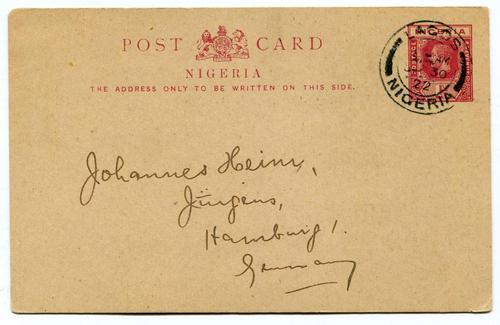 POST CARD
NIGERIA
THE ADDRESS ONLY TO BE WRITTEN ON THIS SIDE.
LAGOS
30
22
NIGERIA
Johannes Heinr.
Jürgens,
Hamburg 1.
Germany